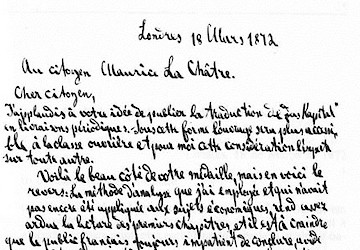 Londres 18 Mars 1872
Au citoyen Maurice La Châtre.
Cher citoyen,
J'applaudis à votre idée de publier la traduction de "Das Kapital"
en livraisons périodiques. Sous cette forme l'ouvrage sera plus accessi-
ble à la classe ouvrière et pour moi cette considération l'emporte
sur toute autre.
Voilà le beau côté de votre médaille, mais en voici le
revers: La méthode d'analyse que j'ai employée et qui n'avait
pas encore été appliquée aux sujets économiques, rend assez
ardue la lecture des premiers chapitres et il est à craindre
que le public français, toujours impatient de conclure, avide